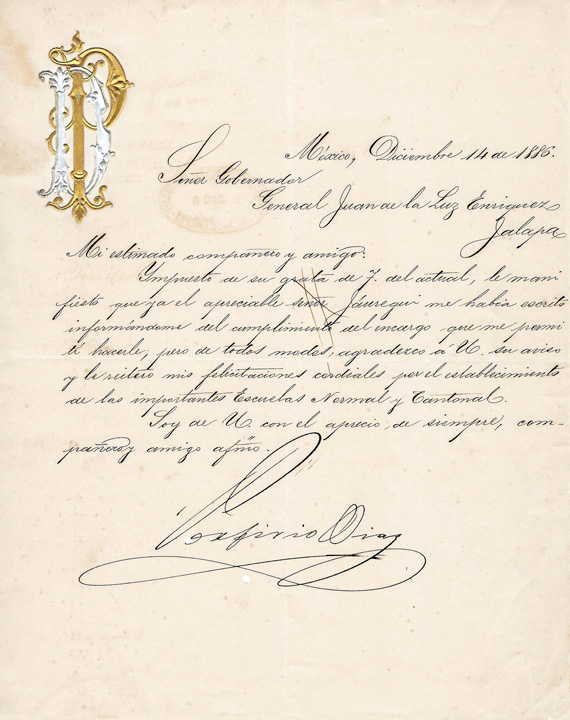 PD
México, Diciembre 14 de 1886.
Señor Gobernador
General Juan de la Luz Enriquez
Jalapa
Mi estimado compañero y amigo:
Impuesto de su grata de 7. del actual, le mani
fiesto que ya el apreciable señor Jáuregui me había escrito
informándome del cumplimiento del encargo que me permi
tí hacerle; pero de todos modos, agradezco á U. su aviso
y le reitero mis felicitaciones cordiales por el establecimiento
de las importantes Escuelas Normal y Cantonal.
Soy de U. con el aprecio de siempre, com-
pañero y amigo afmo.
Porfirio Diaz